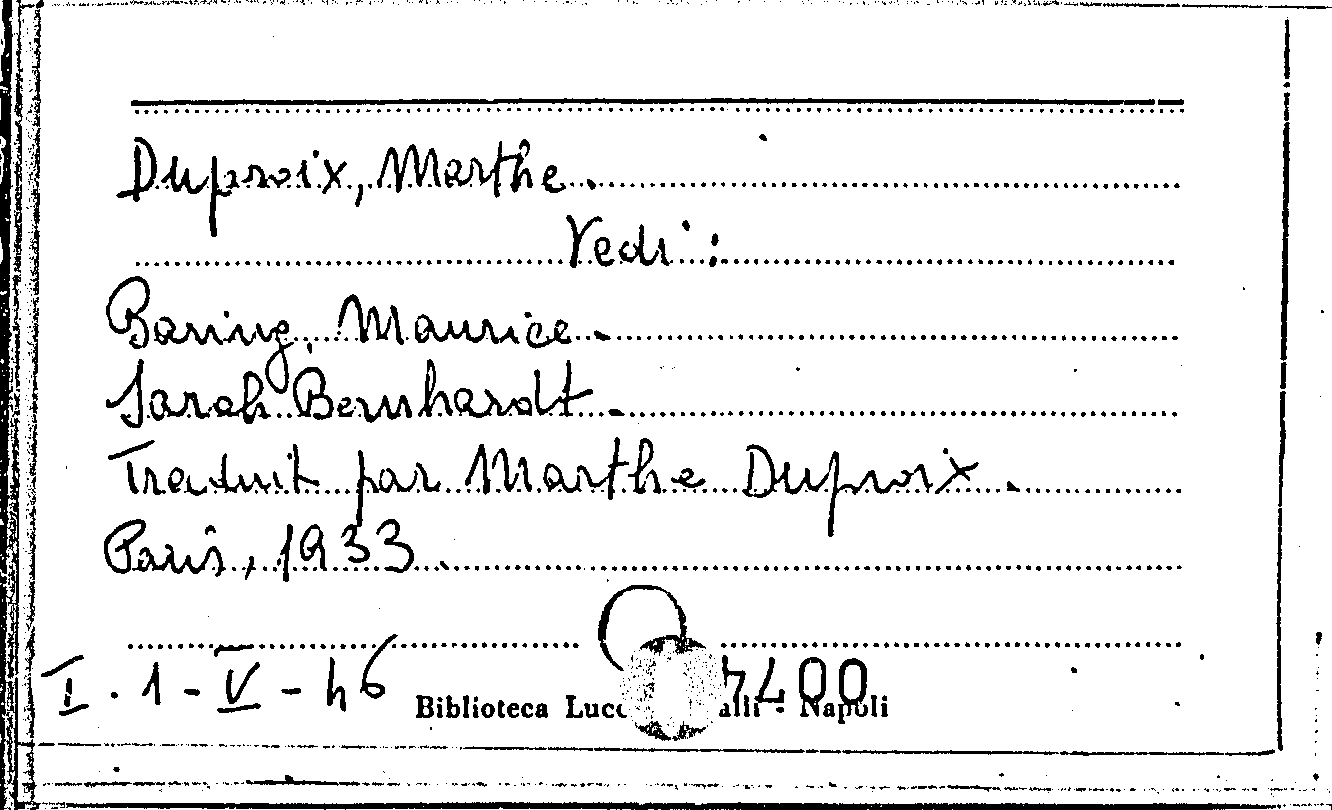 Duproix, Marthe.
Vedi:
Baring, Maurice.
Sarah Bernhardt.
Traduit par Marthe Duproix.
Paris, 1933.
I. 1 - V - 46
Biblioteca Lucc alli - Napoli